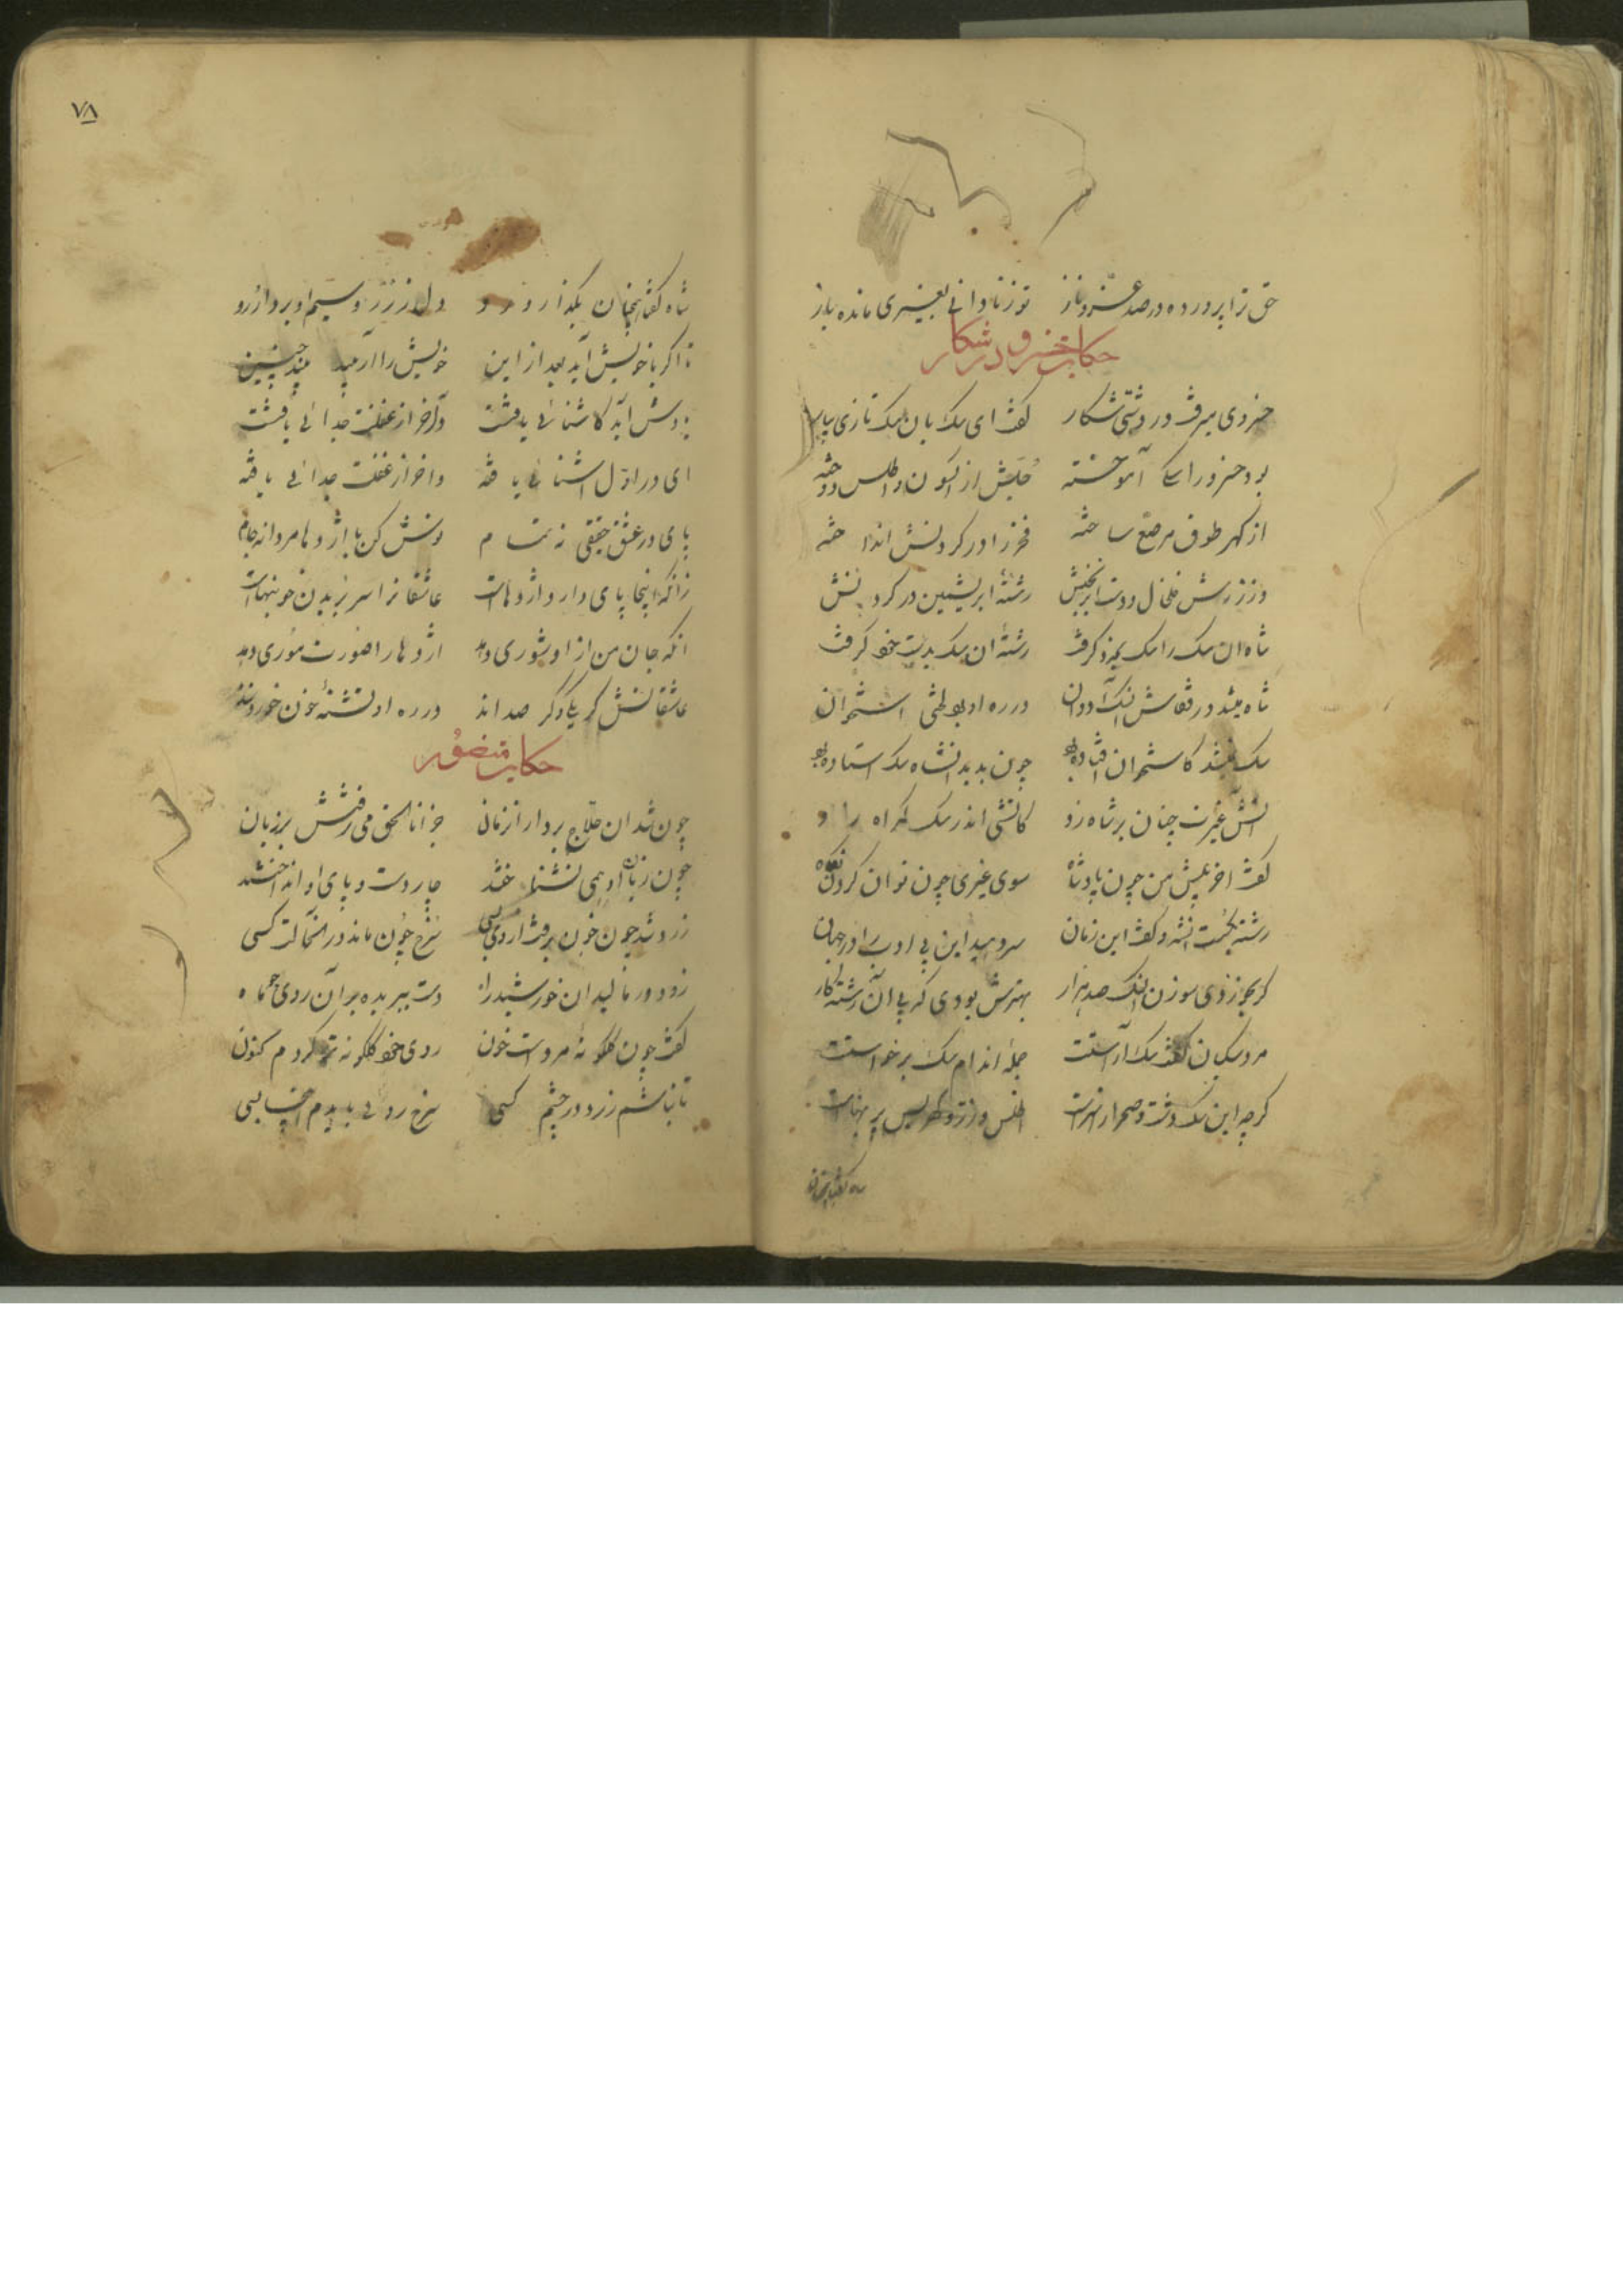 حق ترا پرورده در صد عز و ناز تو ز نادانی بغیری مانده باز
حکایت خسرو در شکار
خسروی میرفت در دشتی شکار گفت ای سک بان سک تازی بیار
بود خسرو را سکی آموخته جلش از اکسون و اطلس دوخته
از کهر طوقی مرصع ساخته فخر را در کردنش انداخته
از زرش خلخال و دست ابرنجنش رشته ابریشمین در کردنش
شاه ان سک را سک بخرد کرفت رشته ان سک بدست خود کرفت
شاه میشد در قفاش آن سک دوان در ره او بود لختی استخوان
سک نمیشد کاستخوان افتاده بود چون بدید آن شاه سک استاده بود
آتش غیرت چنان بر شاه زد کاتشی اندر سک کمراه زد
کفت آخر پیش من چون پادشاه سوی غیری چون توان کردن نکاه
رشته بکسست آن شه و کفت این زمان سر دهید این بی ادب را در جهان
کر بخوردی سوزن آن سک صد هزار بهترش بودی که بی آن رشته کار
مرد سکبان کفت سک آراستست جمله اندام سک بر خواستست
کرچه این سک دشت و صحرا را سزاست اطلس و زر و کهر پس پر بهاست
شاه کفت همچنان
۷۸
شاه کفت همچنان بکذار و رو دل ز زر و سیم او بردار و رو
تا اکر با خویش آید بعد از این خویش را آراسته بیند چنین
یادش آید کاشنائی یافتست وآخر از غفلت جدائی یافتست
ای در اول آشنائی یافته و آخر از غفلت جدائی یافته
پای در عشق حقیقی نه تمام نوش کن با اژدها مردانه جام
زانکه اینجا پای دار و اژدهاست عاشقانرا سر بریدن خونبهاست
آنکه جان من از او شوری دهد اژدها را صورت موری دهد
عاشقانش کر یکی و کر صد اند در ره او تشنه خون خودند
حکایت منصور
چون شد آن حلاج بر دار آن زمان جز انا الحق می نرفتش بر زبان
چون زبان او همی نشناختند چار دست و پای او انداختند
زرد شد چون خون برفت از وی بسی سرخ چون ماند در آن حالت کسی
زود در مالید آن خورشید راه دست ببریده بر آن روی چو ماه
کفت چون کلکونه مردست خون روی خود کلکونه تر کردم کنون
تا نباشم زرد در چشم کسی سرخ روئی بایدم اینجا بسی